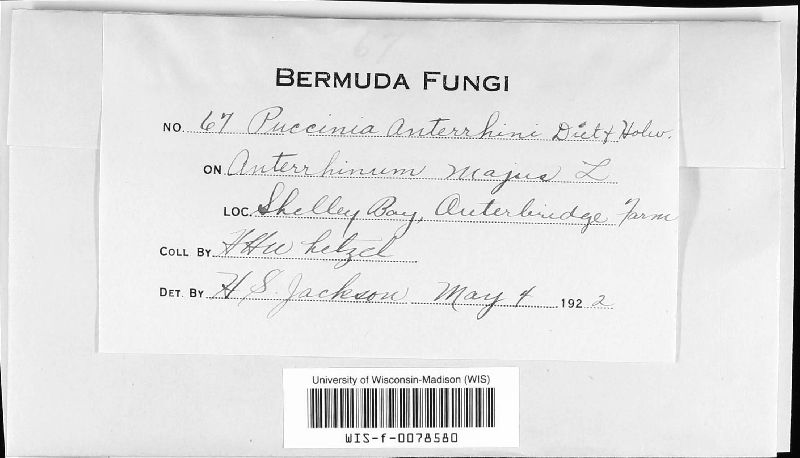 67
BERMUDA FUNGI
NO. 67 Puccinia Anterrhini Diet & Holw.
ON Anterrhinum majus L
LOC. Shelley Bay, Outerbridge Farm
COLL BY HH Whetzel
DET. BY H S. Jackson May 4 1922
University of Wisconsin-Madison (WIS)
WIS-f-0078580